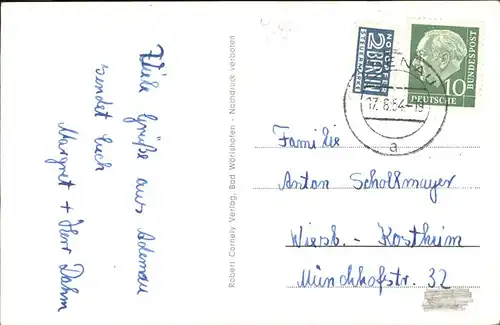 Viele Grüße aus Adenau
sendet Euch
Margret + Herr Dahm
Robert Cornely Verlag, Bad Wörishofen - Nachdruck verboten
NOTOPFER
2 BERLIN
STEUERMARKE
DEUTSCHE
BUNDESPOST
10
ADENAU
17.8.54-19
a
Familie
Anton Schollmayer
Wiesb.- Kostheim
Münchhofstr. 32